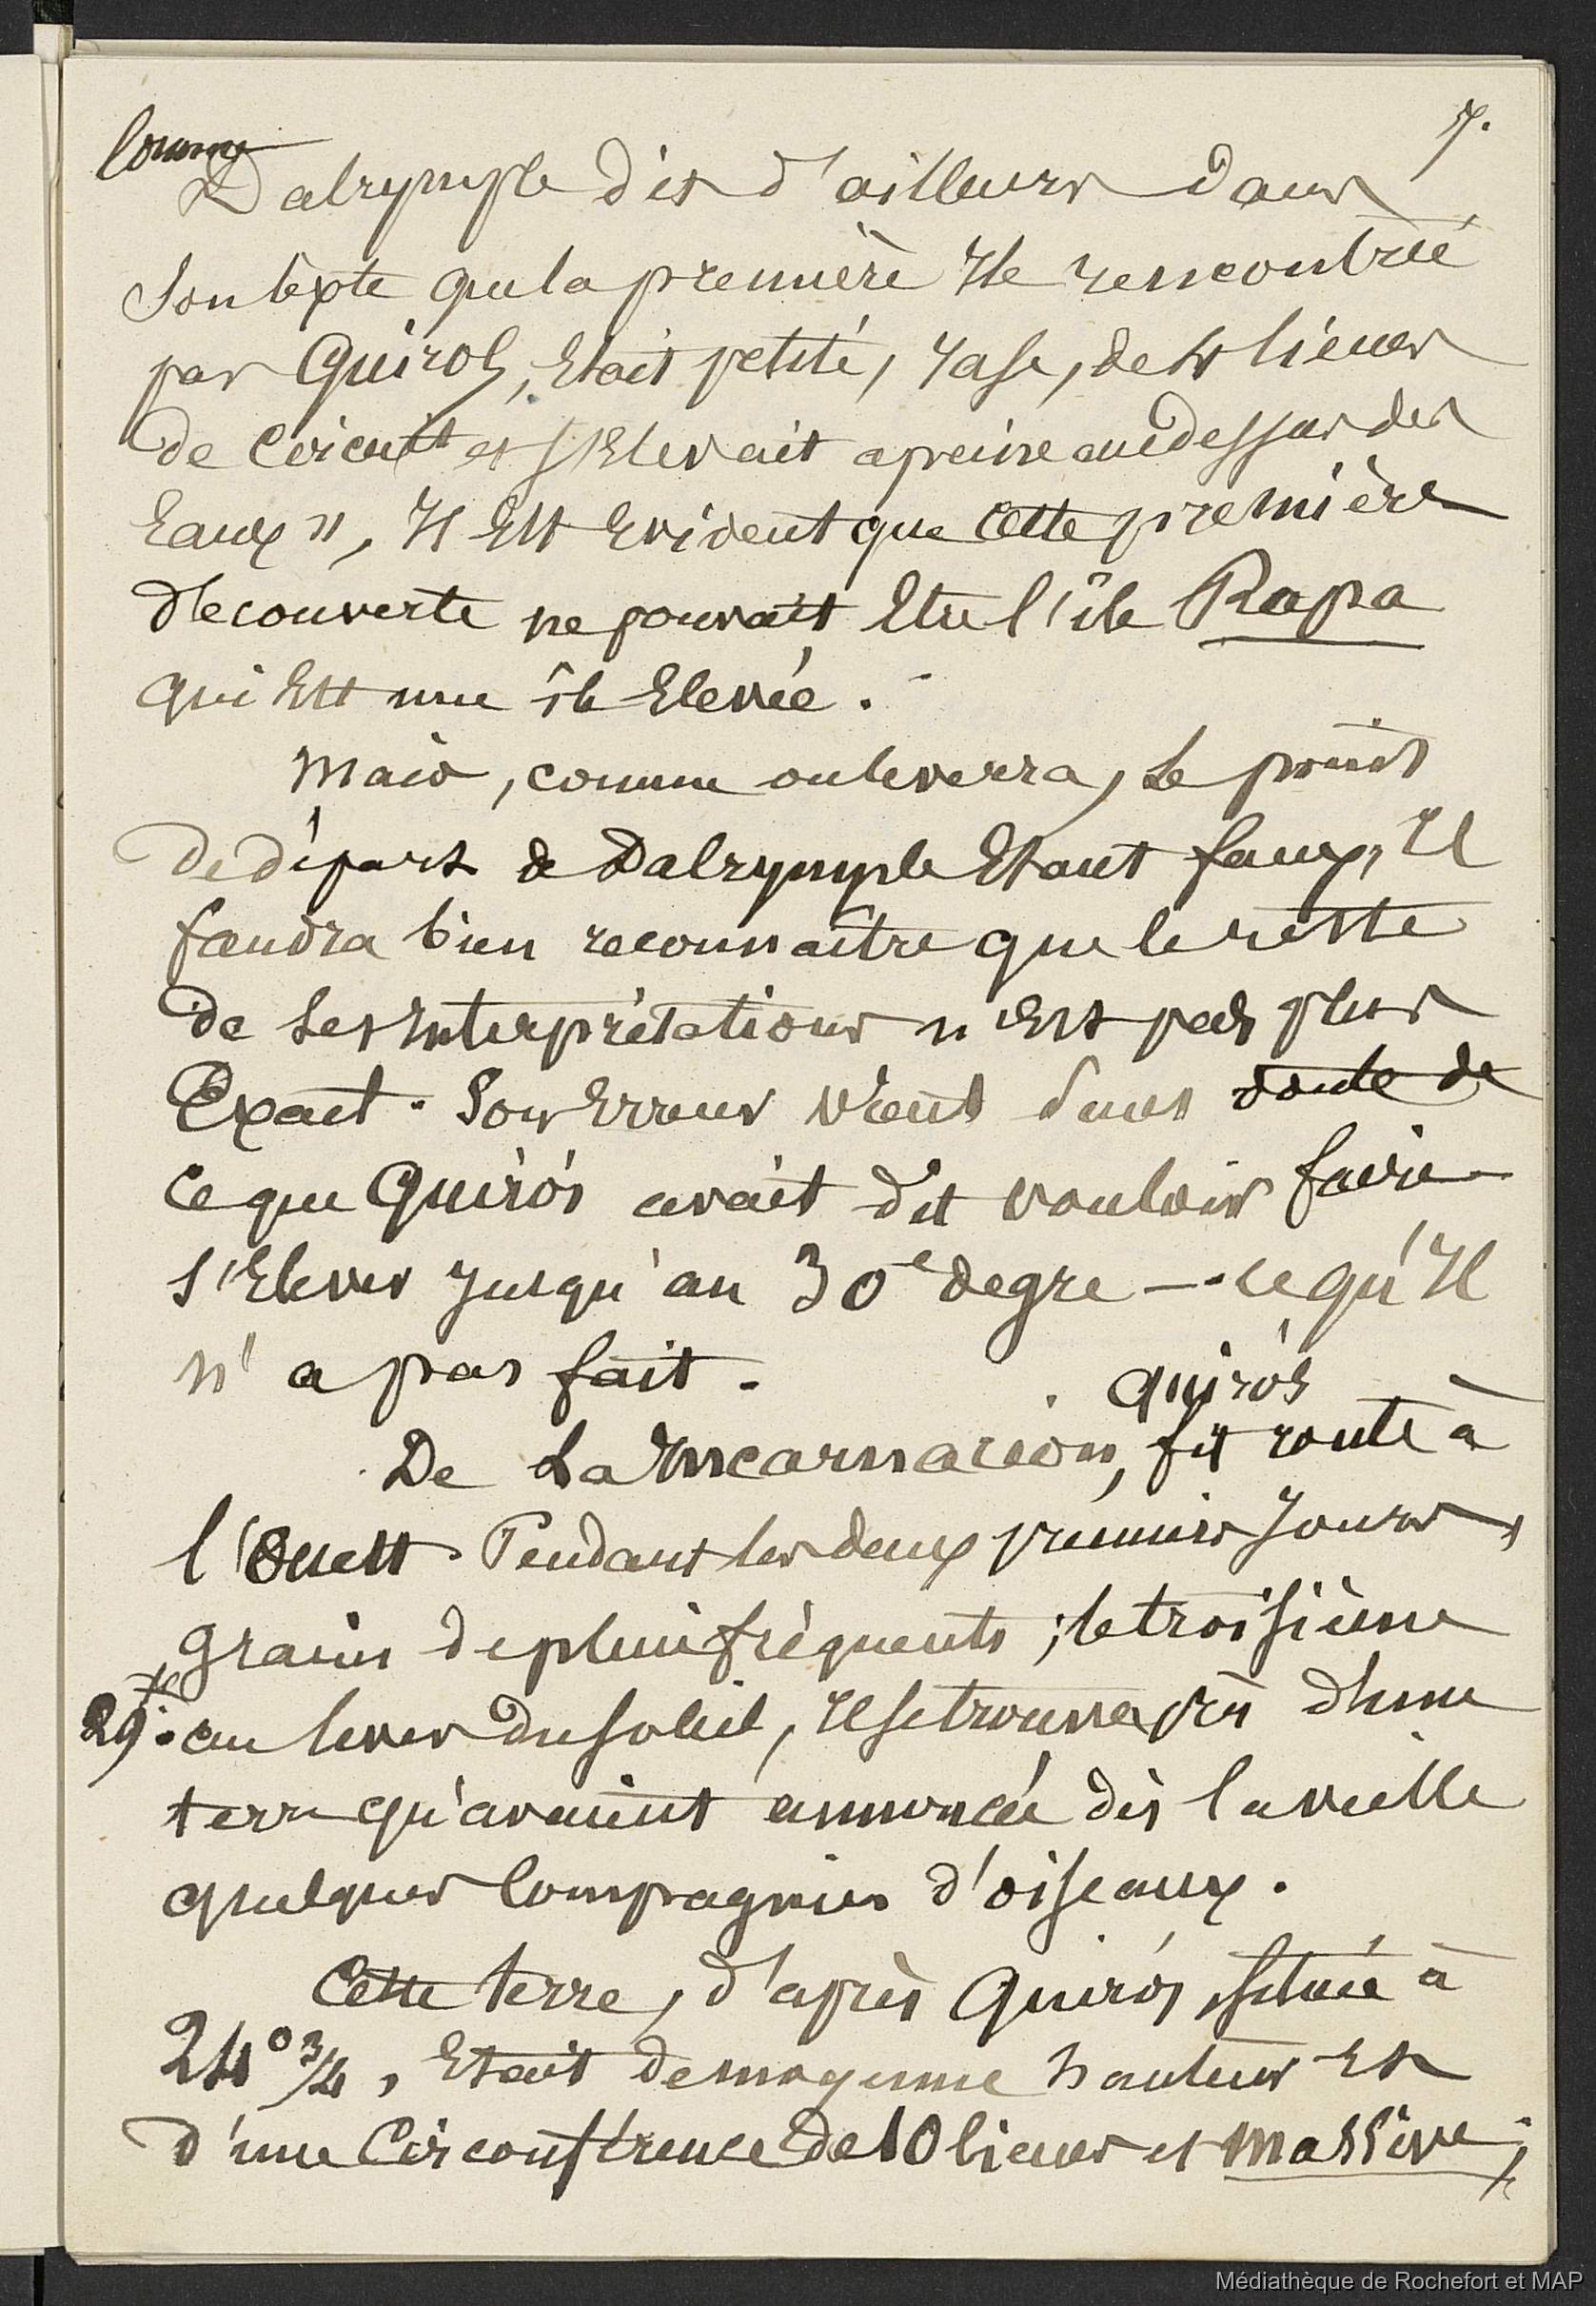 7.
Comme
Dalrymple dit d'ailleurs dans
son texte que la première Ile rencontrée
par Quiros, Etait petite, rase, de 4 lieues
de circuit et s'Elevait a peine au dessus des
Eaux", Il Est Evident que cette première
découverte ne pouvait Etre l'île Rapa
qui Est une île Elevée.
Mais, comme on le verra, le point
de départ de Dalrymple Etant faux, Il
faudra bien reconnaître que le reste
de ses Interprétations n'Est pas plus
Exact. Son Erreur vient sans doute de
ce que Quirós avait dit vouloir faire
s'Elever jusqu'au 30e degré — ce qu'Il
n'a pas fait.
Quirós
De La Incarnacion, fit route à
l'Ouest. Pendant les deux premiers Jours,
grains de pluie fréquents ; le troisième
29. au lever du soleil, Il se trouva près d'une
terre qu'avaient annoncée dès la veille
quelques Compagnies d'oiseaux.
Cette terre, d'après Quirós, située à
24° 3/4, Etait de moyenne hauteur Et
d'une Circonférence de 10 lieues et massive;
Médiathèque de Rochefort et MAP